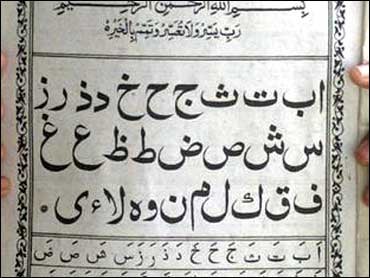 بِسْمِ اللهِ الرَّحْمٰنِ الرَّحِيْمِ
رَبِّ يَسِّرْ وَلَا تُعَسِّرْ وَتَمِّمْ بِالْخَيْرِ
ا ب ت ث ج ح خ د ذ ر ز
س ش ص ض ط ظ ع غ
ف ق ك ل م ن و ه لا ء ى .
اَ بَ تَ ثَ جَ حَ خَ دَ ذَ رَ زَ سَ شَ صَ ضَ